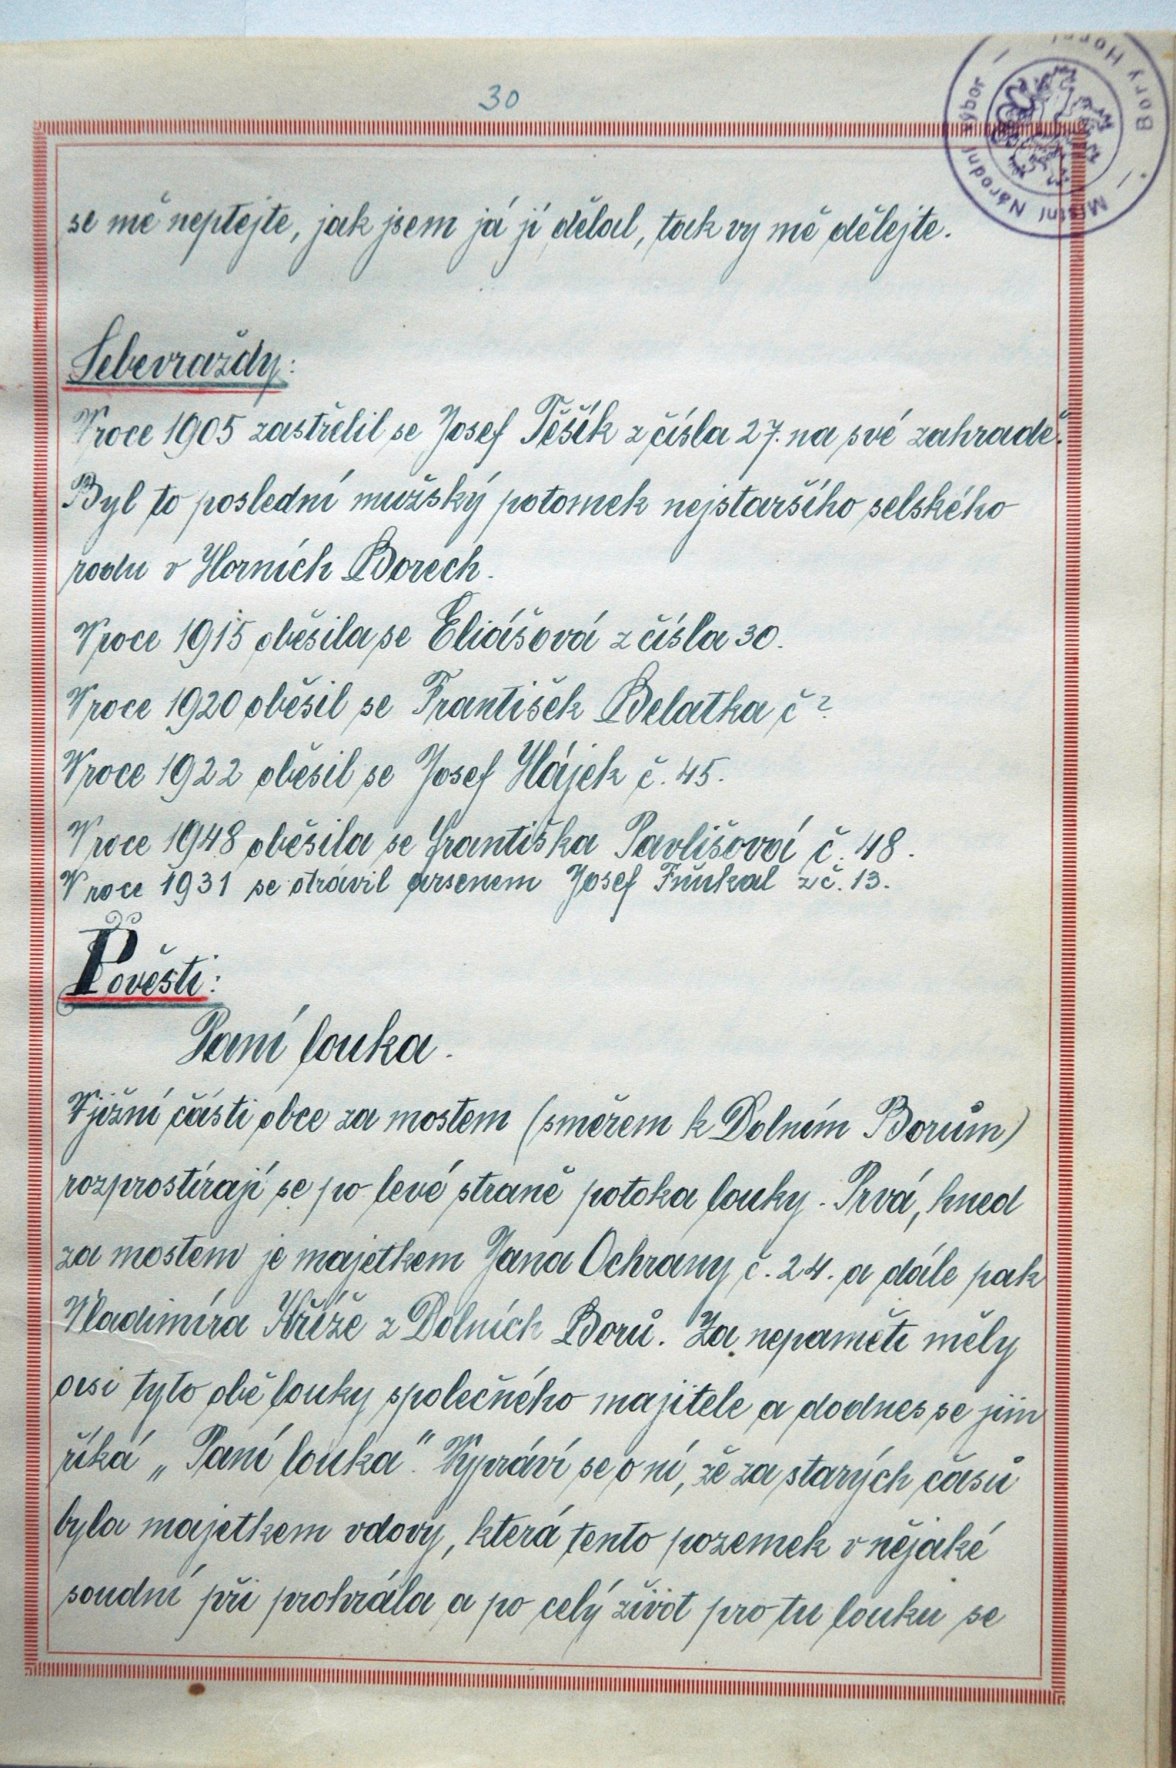 30
Místní Národní výbor — Bory Horní —
se mě neptejte, jak jsem já jí dělal, tak vy mě dělejte.
Sebevraždy:
V roce 1905 zastřelil se Josef Těšík z čísla 27. na své zahradě.
Byl to poslední mužský potomek nejstaršího selského
rodu v Horních Borech.
V roce 1915 oběsila se Eliášová z čísla 30.
V roce 1920 oběsil se František Belatka č ?
V roce 1922 oběsil se Josef Hájek č. 45.
V roce 1948 oběsila se Františka Pavlišová č. 48.
V roce 1931 se otrávil arsenem Josef z č. 13.
Pověsti:
Paní louka.
V jižní části obce za mostem (směrem k Dolním Borům)
rozprostírají se po levé straně potoka louky. Prvá, hned
za mostem je majetkem Jana Ochrany č. 24. a dále pak
Vladimíra Kříže z Dolních Borů. Za nepaměti měly
asi tyto obě louky společného majitele a dodnes se jim
říká „Paní louka". Vypráví se o ní, že za starých časů
byla majetkem vdovy, která tento pozemek v nějaké
soudní při prohrála a po celý život pro tu louku se